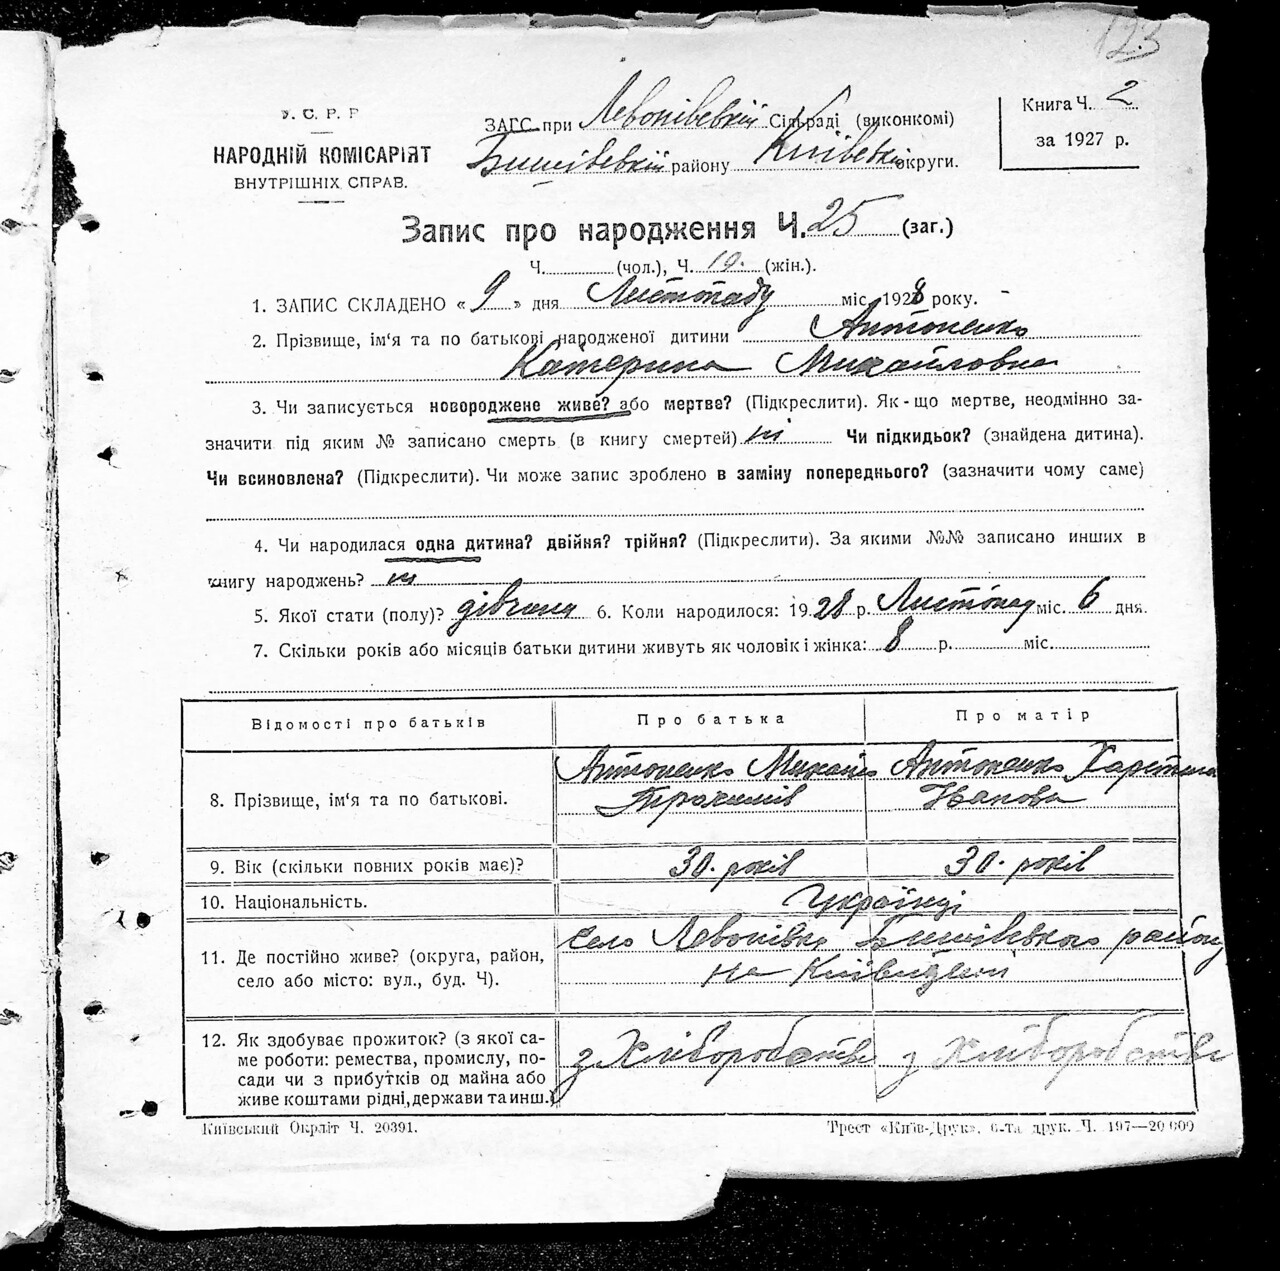 123
У. С. Р. Р
НАРОДНІЙ КОМІСАРІЯТ
ВНУТРІШНІХ СПРАВ.
ЗАГС при Левонівській Сільраді (виконкомі)
Бишівській району Київській округи.
Книга Ч. 2
за 1927 р.
Запис про народження Ч. 25 (заг.)
Ч. (чол.), Ч. 10. (жін.).
1. ЗАПИС СКЛАДЕНО « 9 » дня Листопаду міс. 1928 року.
2. Прізвище, ім'я та по батькові народженої дитини Антоненко
Катерина Михайловна
3. Чи записується новороджене живе? або мертве? (Підкреслити). Як-що мертве, неодмінно за-
значити під яким № записано смерть (в книгу смертей) ні Чи підкидьок? (знайдена дитина).
Чи всиновлена? (Підкреслити). Чи може запис зроблено в заміну попереднього? (зазначити чому саме)
4. Чи народилася одна дитина? двійня? трійня? (Підкреслити). За якими №№ записано инших в
книгу народжень? ні
5. Якої стати (полу)? дівчина 6. Коли народилося: 1928 р. Листопад міс. 6 дня.
7. Скільки років або місяців батьки дитини живуть як чоловік і жінка: 8 р. міс.
Відомості про батьків Про батька Про матір
8. Прізвище, ім'я та по батькові.
Антоненко Михайло Антоненко Харетина
Трохимів Іванова
9. Вік (скільки повних років має)? 30. років 30. років
10. Національність. Українці
11. Де постійно живе? (округа, район,
село або місто: вул., буд. Ч).
село Левонівка Бишівського району
на Київщені
12. Як здобуває прожиток? (з якої са-
ме роботи: ремества, промислу, по-
сади чи з прибутків од майна або
живе коштами рідні, держави та инш.)
з Хліборобства з Хліборобства
Київський Окрліт Ч. 20391.
Трест «Київ-Друк», 6-та друк. Ч. 197—20 000